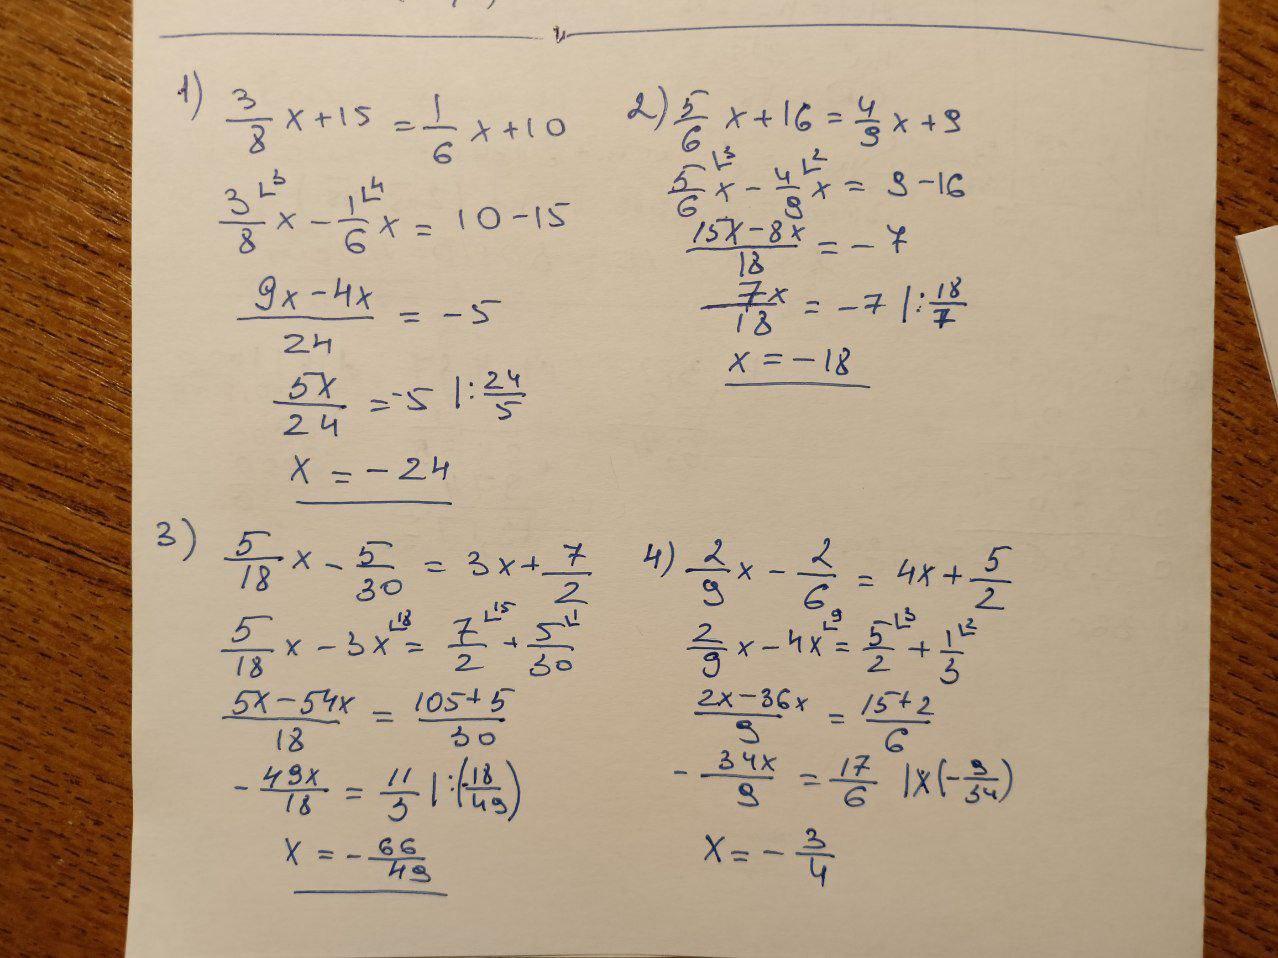 1) 3/8 x + 15 = 1/6 x + 10
3/8 ⌞3 x − 1/6 ⌞4 x = 10 − 15
9x − 4x / 24 = −5
5x/24 = −5 | : 24/5
x = −24
2) 5/6 x + 16 = 4/9 x + 9
5/6 ⌞3 x − 4/9 ⌞2 x = 9 − 16
15x − 8x / 18 = −7
7x/18 = −7 | : 18/7
x = −18
3) 5/18 x − 5/30 = 3x + 7/2
5/18 x − 3x ⌞18 = 7/2 ⌞15 + 5/30 ⌞1
5x − 54x / 18 = 105 + 5 / 30
− 49x/18 = 11/3 | : (−18/49)
x = − 66/49
4) 2/9 x − 2/6 = 4x + 5/2
2/9 x − 4x ⌞9 = 5/2 ⌞3 + 1/3 ⌞2
2x − 36x / 9 = 15 + 2 / 6
− 34x/9 = 17/6 | x (− 9/34)
x = − 3/4